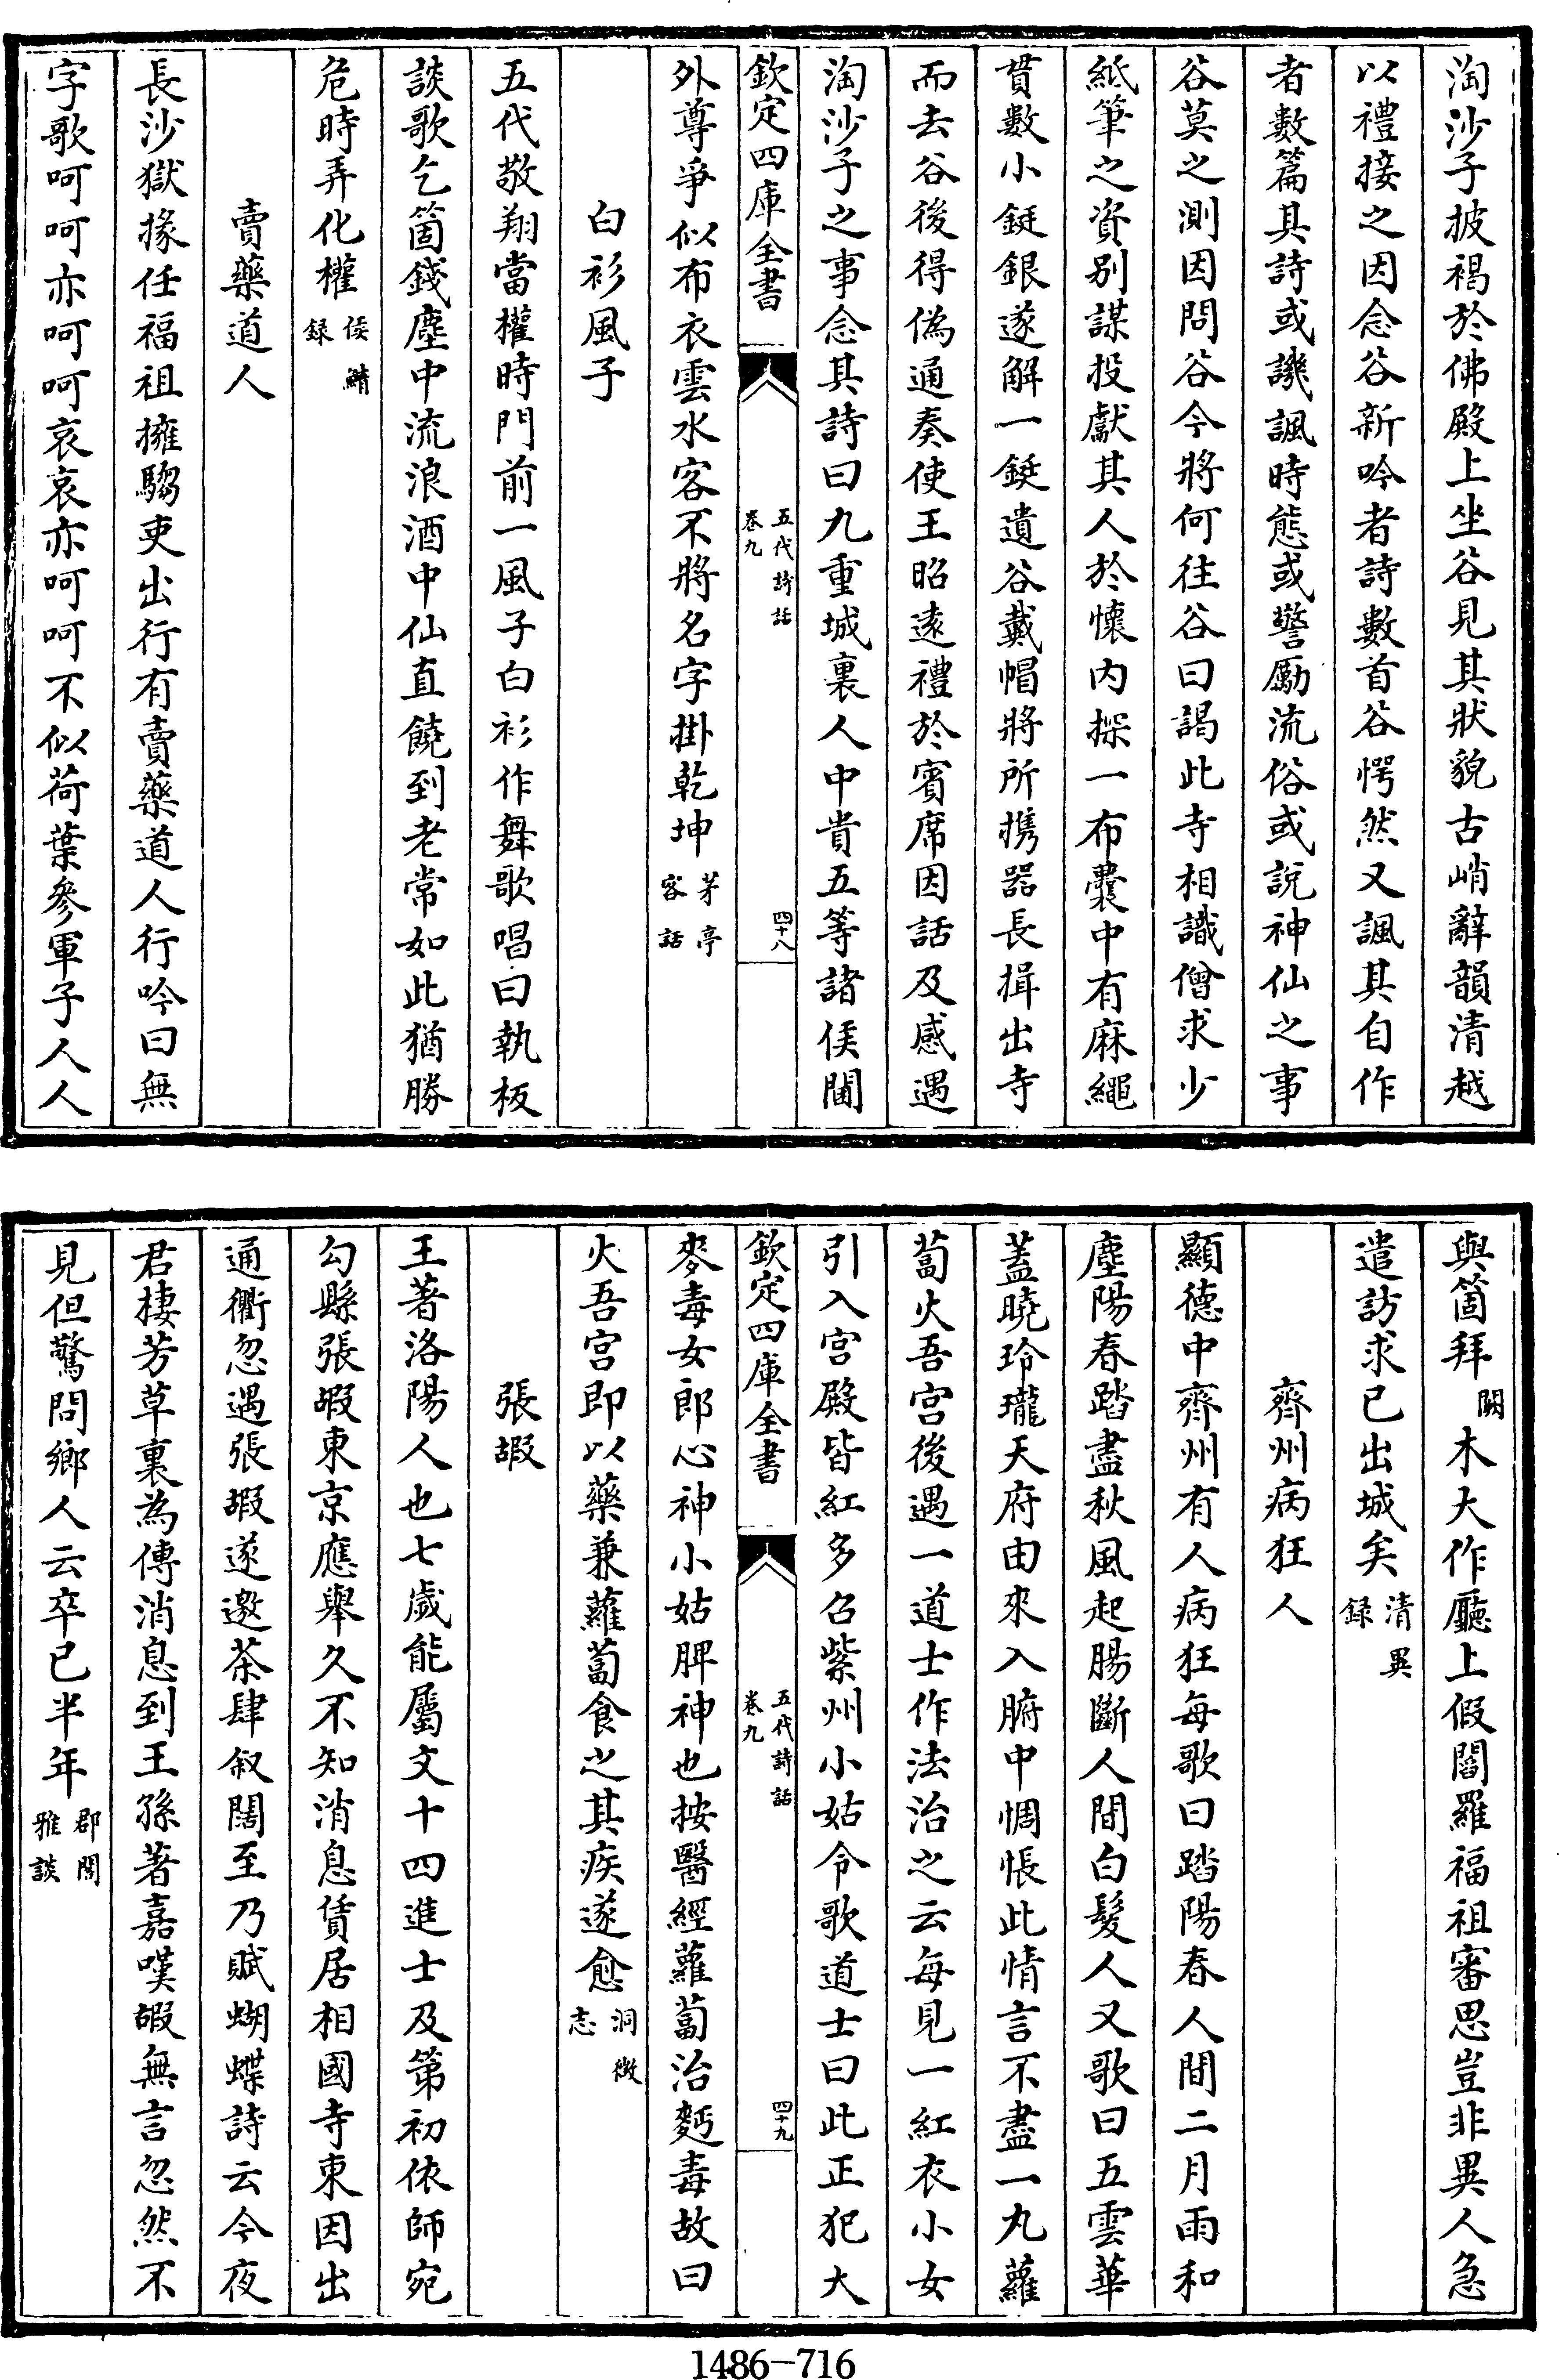 淘沙子披褐於佛殿上坐谷見其狀貌古峭辭韻清越
以禮接之因念谷新吟者詩數首谷愕然又諷其自作
者數篇其詩或譏諷時態或警勵流俗或説神仙之事
谷莫之測因問谷今將何往谷曰謁此寺相識僧求少
紙筆之資别謀投獻其人於懷内探一布囊中有麻繩
貫數小鋌銀遂解一鋌遺谷戴帽將所携器長揖出寺
而去谷後得偽通奏使王昭遠禮於賓席因話及感遇
淘沙子之事念其詩曰九重城裏人中貴五等諸侯閫
欽定四庫全書
五代詩話
卷九
四十八
外尊爭似布衣雲水客不將名字掛乾坤茅亭
客話
白衫風子
五代敬翔當權時門前一風子白衫作舞歌唱曰執板
談歌乞箇錢塵中流浪酒中仙直饒到老常如此猶勝
危時弄化權侯鯖
録
賣藥道人
長沙獄掾任福祖擁騶吏出行有賣藥道人行吟曰無
字歌呵呵亦呵呵哀哀亦呵呵不似荷葉參軍子人人
與箇拜闕木大作廳上假閻羅福祖審思豈非異人急
遣訪求已出城矣清異
録
齊州病狂人
顯德中齊州有人病狂每歌曰踏陽春人間二月雨和
塵陽春踏盡秋風起腸斷人間白髮人又歌曰五雲華
蓋曉玲瓏天府由來入腑中惆悵此情言不盡一丸蘿
蔔火吾宫後遇一道士作法治之云每見一紅衣小女
引入宫殿皆紅多召紫州小姑令歌道士曰此正犯大
欽定四庫全書
五代詩話
卷九
四十九
麥毒女郎心神小姑脾神也按醫經蘿蔔治麪毒故曰
火吾宫即以藥兼蘿蔔食之其疾遂愈洞微
志
張嘏
王著洛陽人也七歲能屬文十四進士及第初依師宛
勾縣張嘏東京應舉久不知消息賃居相國寺東因出
通衢忽遇張嘏遂邀茶肆叙闊至乃賦蝴蝶詩云今夜
君棲芳草裏為傳消息到王孫著嘉嘆嘏無言忽然不
見但驚問鄉人云卒已半年郡閣
雅談
1486-716